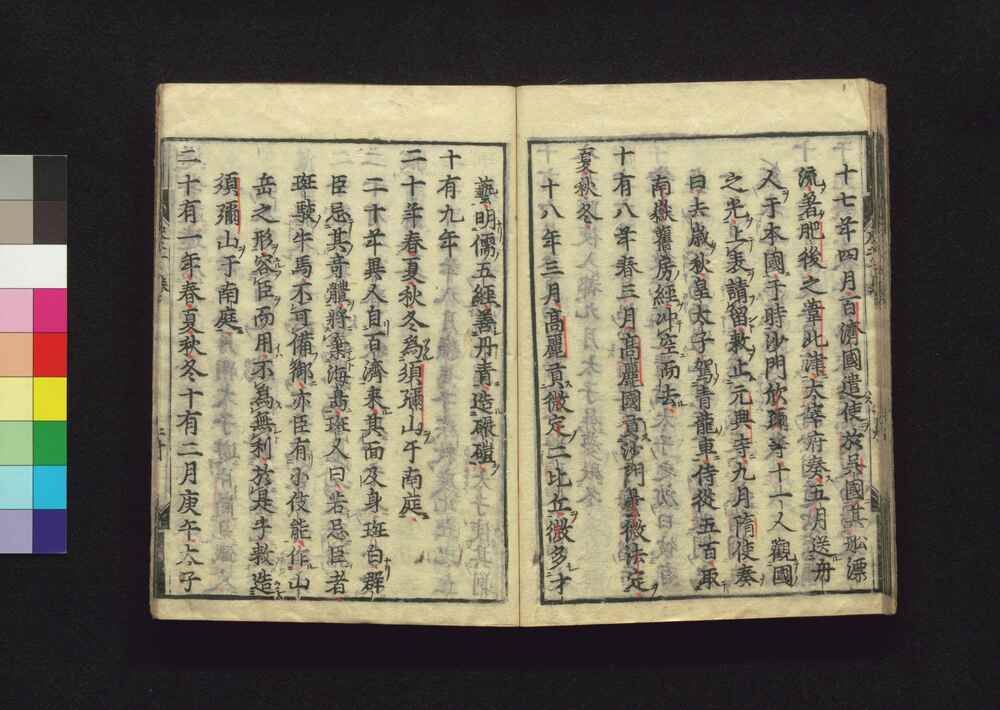 十七年四月百濟國遣使於吳國其舩漂
流著肥後之葦北津大宰府奏五月送舟
人于本國于時沙門欣彌等十一人觀國
之光上表請留敕止元興寺九月隋使奏
曰去歲秋皇太子駕青龍車侍從五百取
南嶽舊房經冲空而去
十有八年春三月高麗國貢沙門曇徵法定
夏秋冬
十八年三月高麗貢徵定二比丘徵多才
藝明儒五經善丹青造碾磑
十有九年
二十年春夏秋冬為須彌山于南庭
二十年異人自百濟来其面及身斑白群
臣忌其奇體將棄海嶋斑人曰若忌臣者
斑駮牛馬不可備鄉亦臣有小伎能作山
岳之形容臣而用不為無利於是乎敕造
須彌山于南庭
二十有一年春夏秋冬十有二月庚午太子